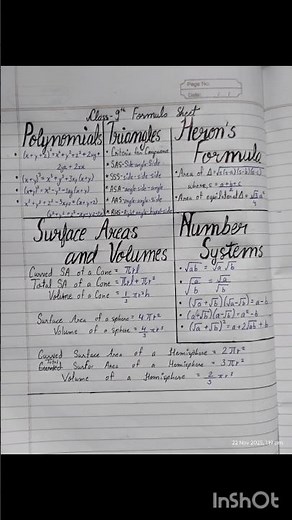 Page No.
Date:
Class-9th Formula Sheet
Polynomials
• (x+y+z)²=x²+y²+z²+2xy+
2yz+2zx
• (x+y)³=x³+y³+3xy(x+y)
Triangles
• Criteria for Congruence
• SAS-Side-angle-Side
• SSS-side-side-side
• ASA-angle-side-angle
• AAS-angle-angle-side
Heron's
Formula
• Area of Δ=√s(s-a)(s-b)(s-c)
where, s = a+b+c
• Area of equilateral Δ = √3 a²
4
Surface Areas
and Volumes
Curved SA of a Cone = πrl
Total SA of a Cone = πrl+πr²
Volume of a Cone = 1/3 πr²h
Surface Area of a sphere = 4πr²
Volume of a sphere = 4/3 πr³
Number
Systems
• √ab = √a √b
• √a/b = √a/√b
• (√a+√b)(√a-√b)=a-b
• (a+√b)(a-√b)=a²-b
• (√a+√b)²=a+2√ab+b
Curved Surface Area of a Hemisphere = 2πr²
Surface Area of a Hemisphere = 3πr²
Volume of a Hemisphere = 2/3 πr³
InShOt